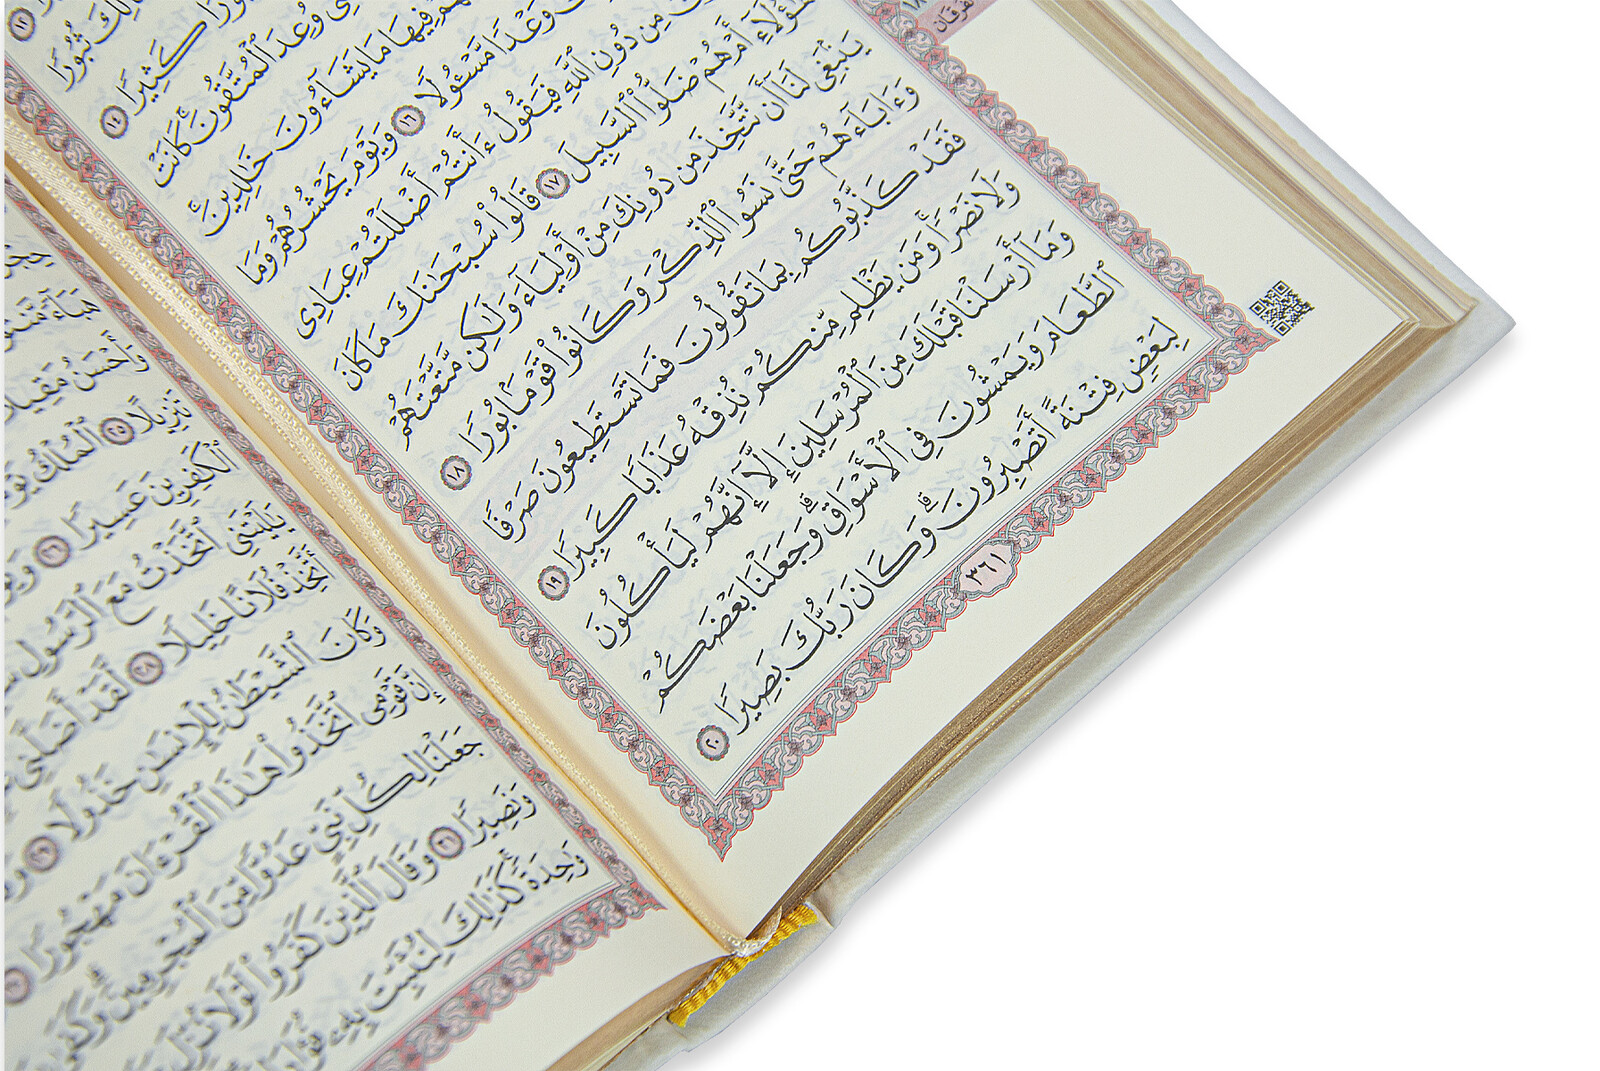 الفرقان
١٢
ثُبُورًا
كَثِيرًا ١٤
وُعِدَ ٱلْمُتَّقُونَ ۚ كَانَتْ
فِيهَا مَا يَشَآءُونَ خَٰلِدِينَ ۚ
وَعْدًا مَّسْـُٔولًا ١٦ وَيَوْمَ يَحْشُرُهُمْ وَمَا
مِن دُونِ ٱللَّهِ فَيَقُولُ ءَأَنتُمْ أَضْلَلْتُمْ عِبَادِى
هَٰٓؤُلَآءِ أَمْ هُمْ ضَلُّوا۟ ٱلسَّبِيلَ ١٧ قَالُوا۟ سُبْحَٰنَكَ مَا كَانَ
يَنۢبَغِى لَنَآ أَن نَّتَّخِذَ مِن دُونِكَ مِنْ أَوْلِيَآءَ وَلَٰكِن مَّتَّعْتَهُمْ
وَءَابَآءَهُمْ حَتَّىٰ نَسُوا۟ ٱلذِّكْرَ وَكَانُوا۟ قَوْمًۢا بُورًا ١٨
فَقَدْ كَذَّبُوكُم بِمَا تَقُولُونَ فَمَا تَسْتَطِيعُونَ صَرْفًا
وَلَا نَصْرًا ۚ وَمَن يَظْلِم مِّنكُمْ نُذِقْهُ عَذَابًا كَبِيرًا ١٩
وَمَآ أَرْسَلْنَا قَبْلَكَ مِنَ ٱلْمُرْسَلِينَ إِلَّآ إِنَّهُمْ لَيَأْكُلُونَ
ٱلطَّعَامَ وَيَمْشُونَ فِى ٱلْأَسْوَاقِ ۗ وَجَعَلْنَا بَعْضَكُمْ
لِبَعْضٍ فِتْنَةً أَتَصْبِرُونَ ۗ وَكَانَ رَبُّكَ بَصِيرًا ٢٠
٣٦١
هَبَآءً
وَأَحْسَنُ مَقِيلًا
تَنزِيلًا ٢٥ ٱلْمُلْكُ
ٱلْكَٰفِرِينَ عَسِيرًا ٢٦
يَٰلَيْتَنِى ٱتَّخَذْتُ مَعَ ٱلرَّسُولِ
أَتَّخِذْ فُلَانًا خَلِيلًا ٢٨ لَّقَدْ أَضَلَّنِى
وَكَانَ ٱلشَّيْطَٰنُ لِلْإِنسَٰنِ خَذُولًا ٢٩
إِنَّ قَوْمِى ٱتَّخَذُوا۟ هَٰذَا ٱلْقُرْءَانَ مَهْجُورًا ٣٠
جَعَلْنَا لِكُلِّ نَبِىٍّ عَدُوًّا مِّنَ ٱلْمُجْرِمِينَ ۗ وَكَفَىٰ
وَنَصِيرًا ٣١ وَقَالَ ٱلَّذِينَ كَفَرُوا۟ لَوْلَا نُزِّلَ
وَٰحِدَةً ۚ كَذَٰلِكَ لِنُثَبِّتَ بِهِۦ